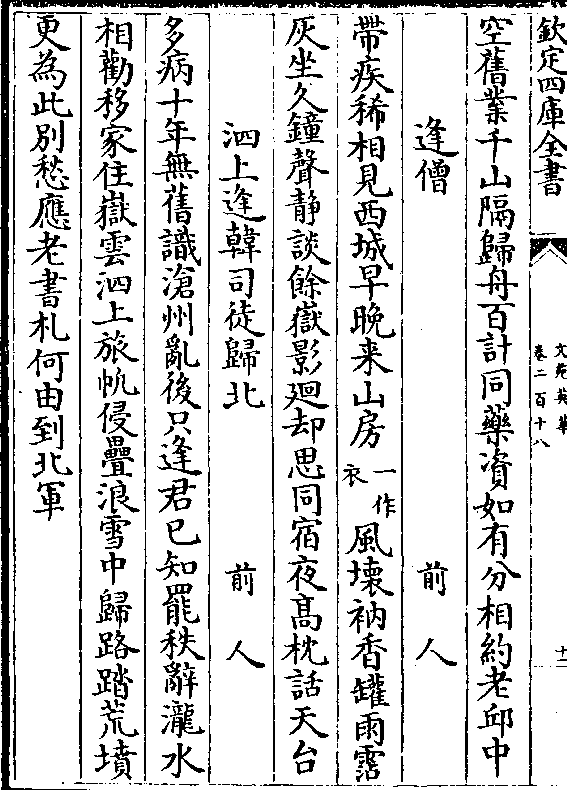 欽定四庫全書
文苑英華
卷二百十八
十二
空舊業千山隔歸舟百計同藥資如有分相約老邱中
逢僧 前人
帶疾稀相見西城早晚来山房一作衣風壊衲香罐雨霑
灰坐久鐘聲静談餘嶽影廻却思同宿夜髙枕話天台
泗上逢韓司徒歸北 前人
多病十年無舊識滄州亂後只逢君已知罷秩辭瀧水
相勸移家住嶽雲泗上旅帆侵疊浪雪中歸路踏荒墳
更為此别愁應老書札何由到北軍